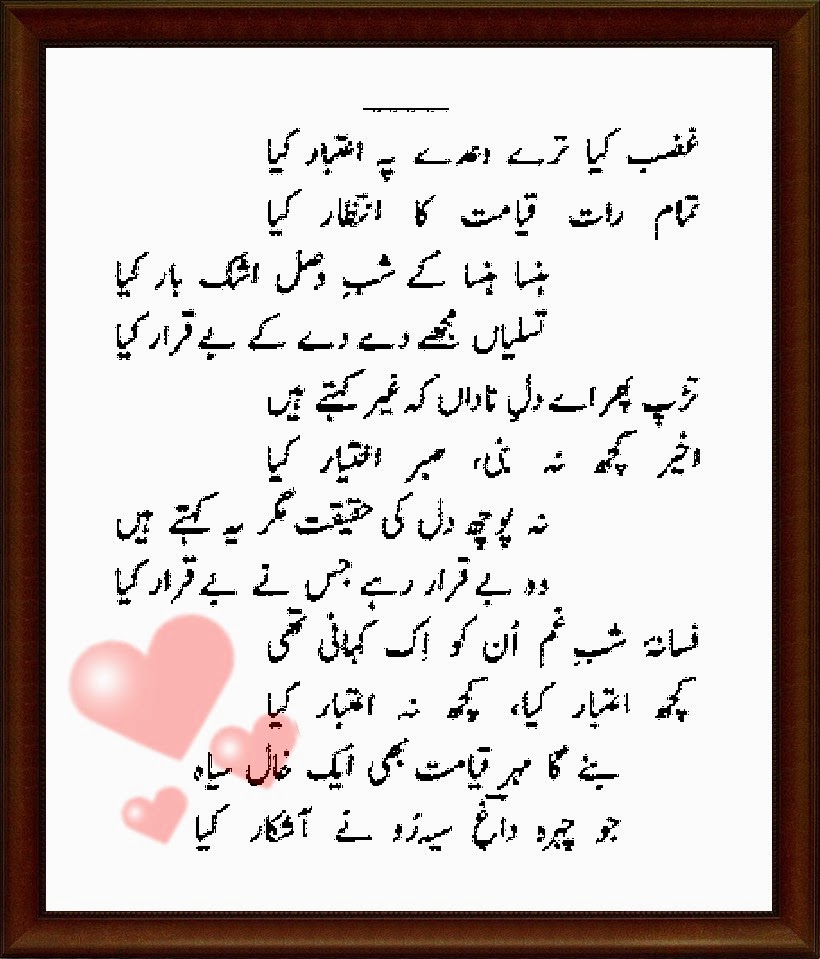 غضب کیا ترے وعدے پہ اعتبار کیا
تمام رات قیامت کا انتظار کیا
ہنسا ہنسا کے شبِ وصل اشک بار کیا
تسلیاں مجھے دے دے کے بے قرار کیا
تڑپ پھر اے دلِ ناداں کہ غیر کہتے ہیں
اخیر کچھ نہ بنی، صبر اختیار کیا
نہ پوچھ دل کی حقیقت مگر یہ کہتے ہیں
وہ بے قرار رہے جس نے بے قرار کیا
فسانۂ شبِ غم اُن کو اِک کہانی تھی
کچھ اعتبار کیا، کچھ نہ اعتبار کیا
بنے گا مہرِ قیامت بھی ایک خال سیاہ
جو چہرہ داغِ سیہ رُو نے آشکار کیا